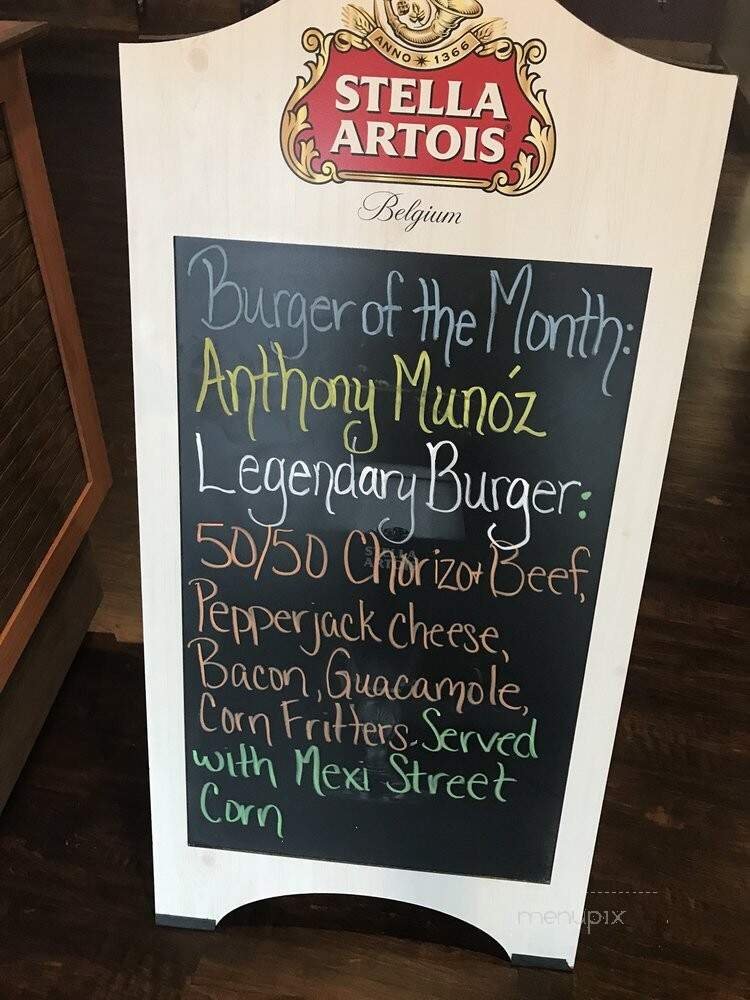 ANNO * 1366
STELLA
ARTOIS
Belgium
Burger of the Month:
Anthony Munóz
Legendary Burger:
50/50 Chorizo + Beef,
STELLA
ARTOIS
Pepperjack cheese,
Bacon, Guacamole,
Corn Fritters. Served
with Mexi Street
Corn
menupix